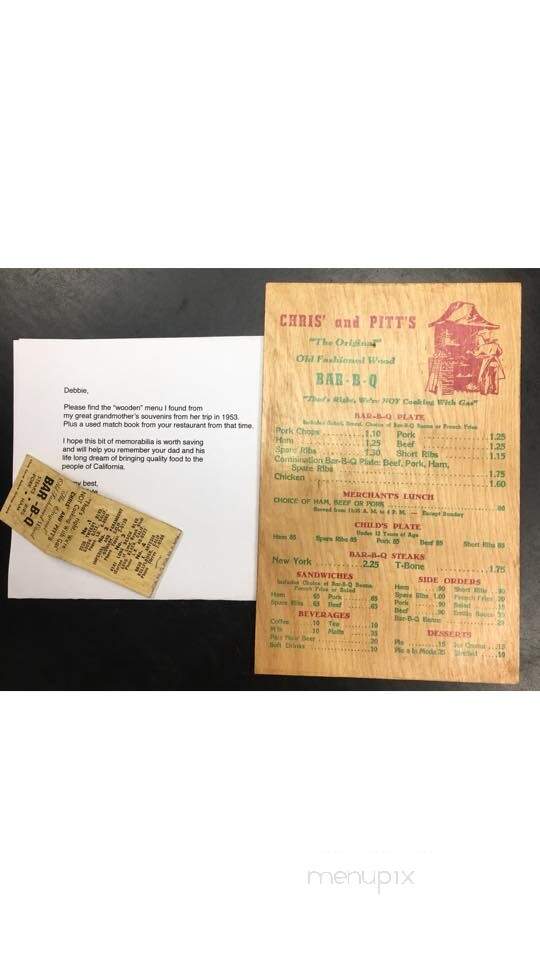 Debbie,
Please find the "wooden" menu I found from
my great grandmother's souvenirs from her trip in 1953.
Plus a used match book from your restaurant from that time.
I hope this bit of memorabilia is worth saving
and will help you remember your dad and his
life long dream of bringing quality food to the
people of California.
my best,
BAR-B-Q
CHRIS' and PITT'S
"The Original"
Old Fashioned Wood
BAR-B-Q
"That's Right, We're NOT Cooking With Gas"
BAR-B-Q PLATE
Includes Salad, Bread, Choice of Bar-B-Q Beans or French Fries
Pork Chops 1.10 Pork 1.25
Ham 1.25 Beef 1.25
Spare Ribs 1.30 Short Ribs 1.15
Combination Bar-B-Q Plate: Beef, Pork, Ham,
Spare Ribs 1.75
Chicken 1.60
MERCHANT'S LUNCH
CHOICE OF HAM, BEEF OR PORK
Except Sunday
CHILD'S PLATE
Under 12 Years of Age
Ham 85 Spare Ribs 85 Pork 85 Beef 85 Short Ribs 85
BAR-B-Q STEAKS
New York 2.25 T-Bone 1.75
SANDWICHES
Includes Choice of Bar-B-Q Beans
French Fries or Salad
Ham 65 Pork .65
Spare Ribs 65 Beef .65
BEVERAGES
Coffee 10 Tea 10
Milk 10 Malts 35
Beer 20
Soft Drinks 10
SIDE ORDERS
Ham .90 Short Ribs
Spare Ribs 1.00 French Fries 20
Pork .90 Salad 15
Beef .90
Bar-B-Q Beans
DESSERTS
Pie .15 Ice Cream .15
Pie a la Mode 25 Sherbet .10
menupix